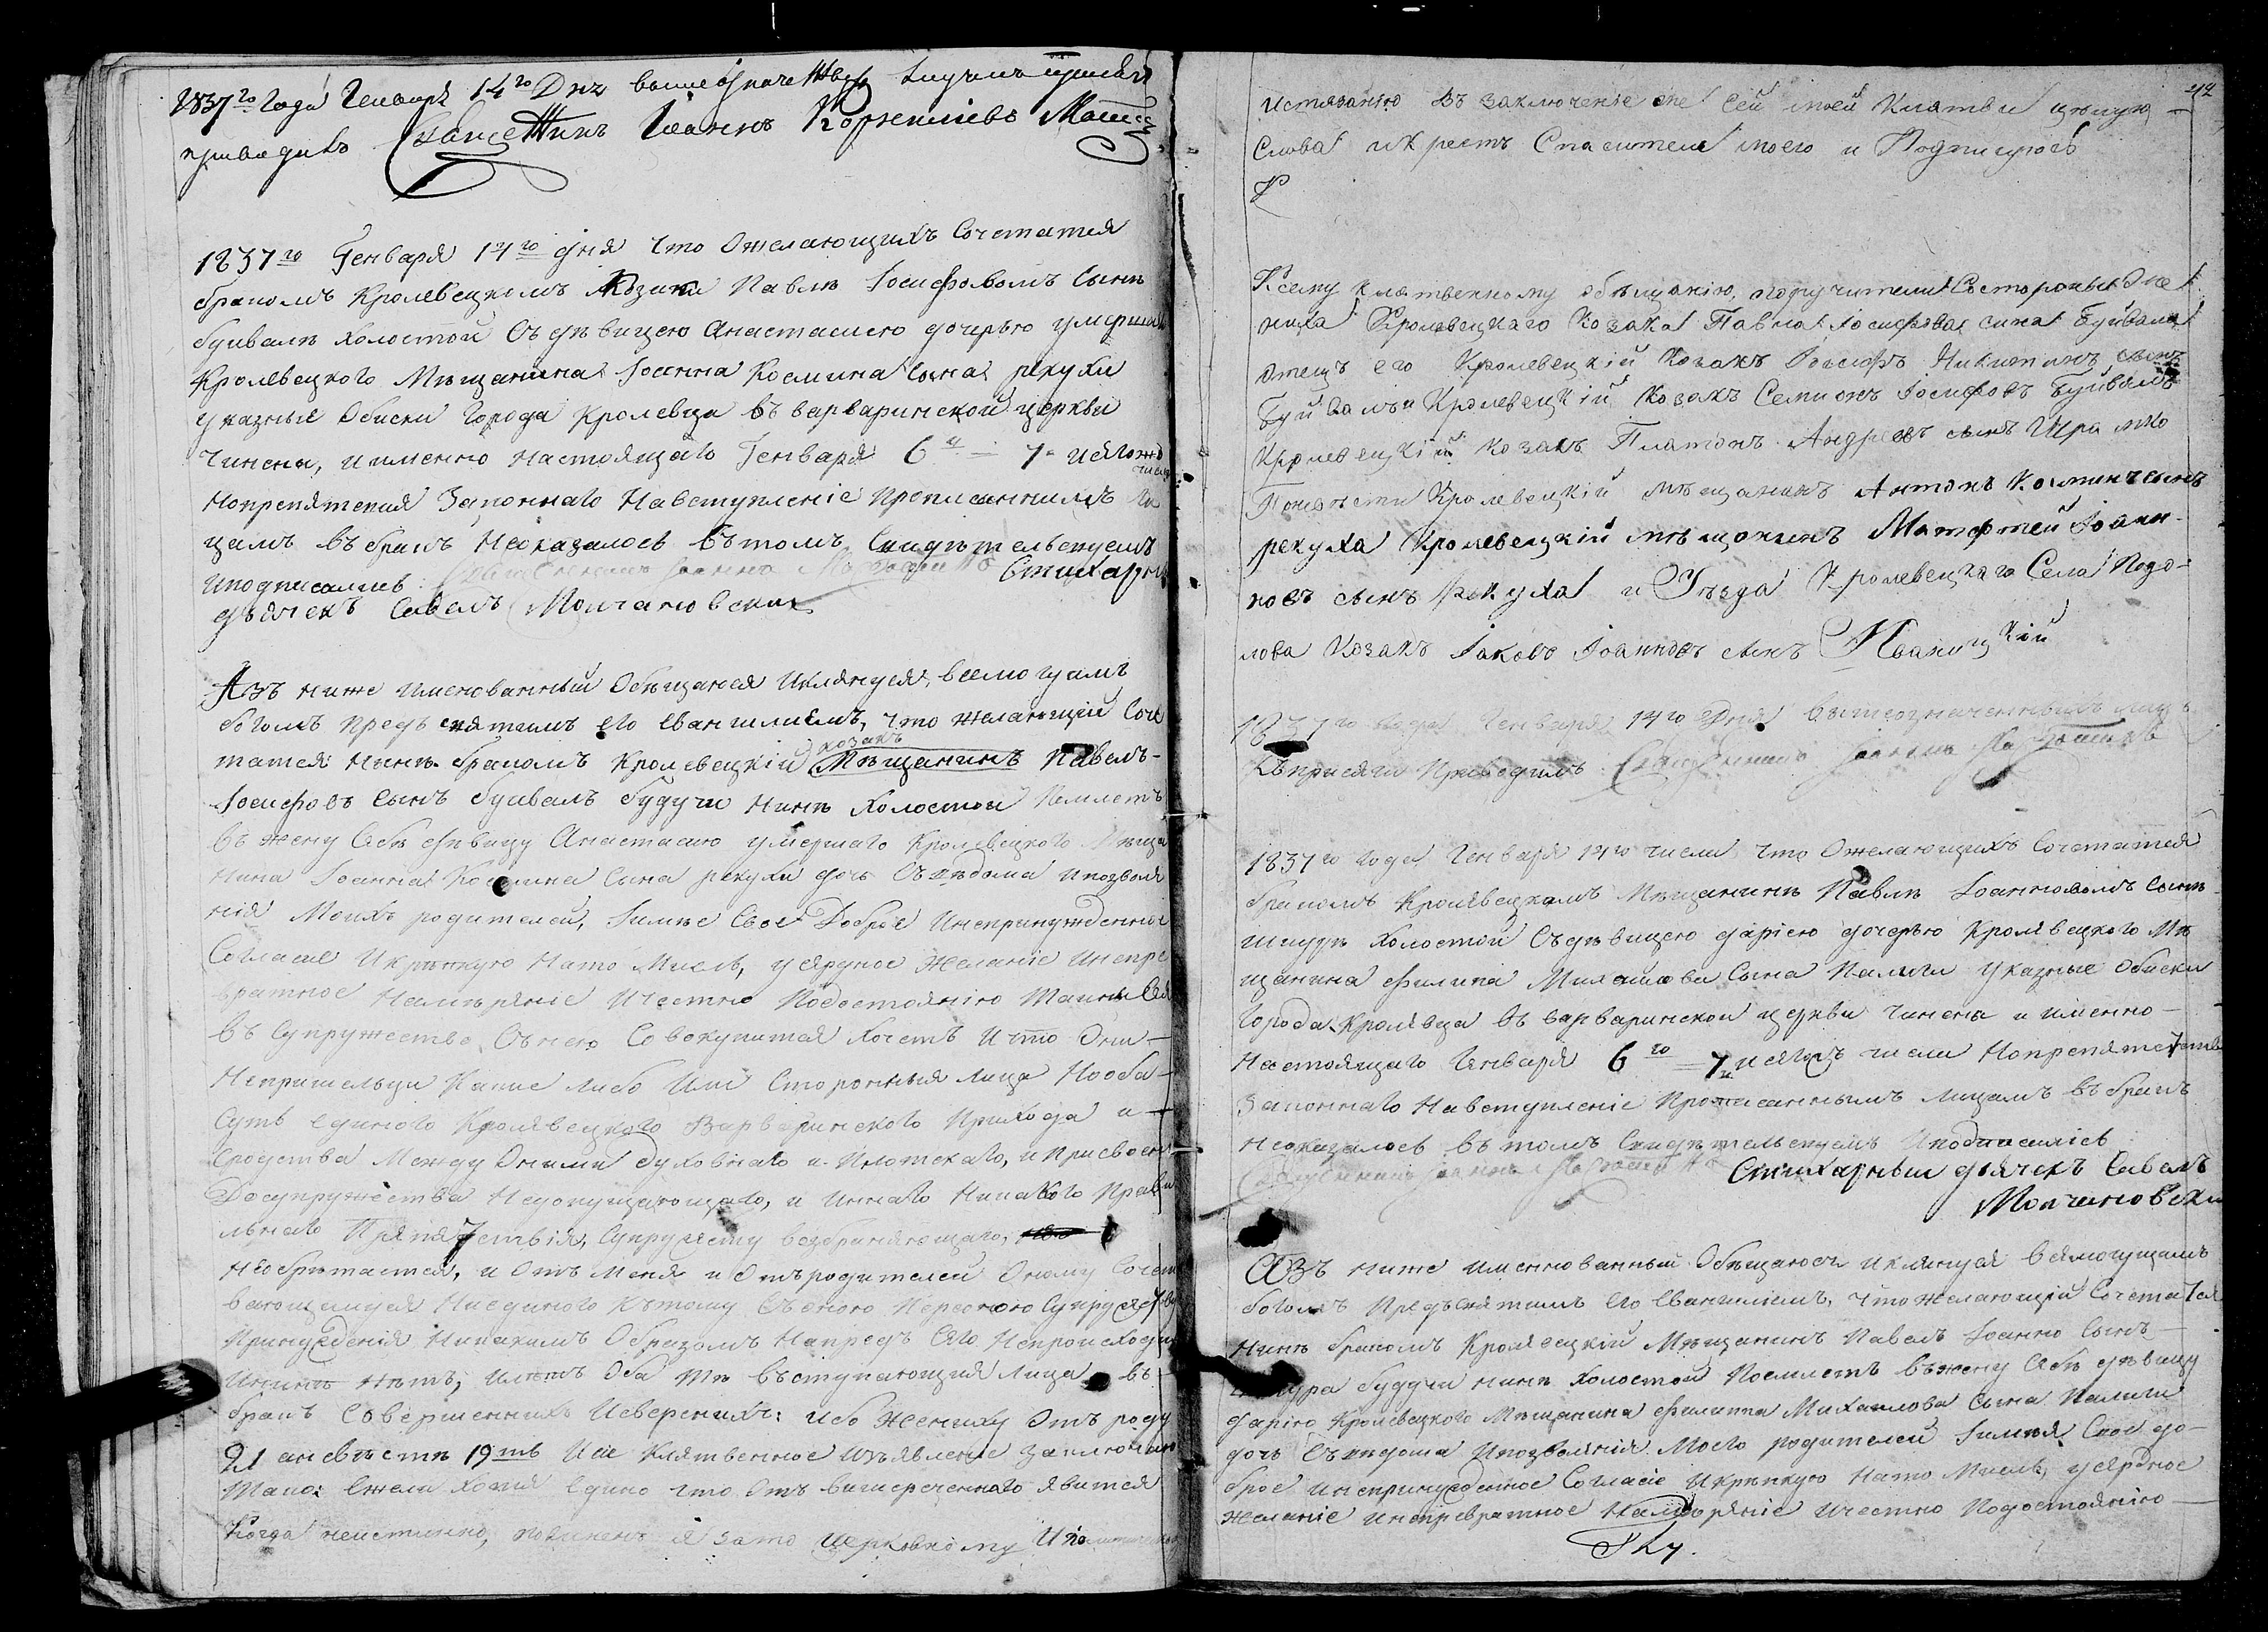 1837го Года Генваря 14го Дня вышеозначеннихъ
приводилъ Священникъ Іоаннъ
1837го Генваря 14го дня что Ожелающихъ Сочетатся
бракомъ Кролевецкомъ Козаки Павлѣ Іосифовомъ Сынѣ
буивалѣ холостой Съ дѣвицею Анастасиею дочерью умерша
Кролевецкого Мѣщанина Іоанна Космина Сына рекухи
указные Обиски Города Кролевца въ варваринской церкви
Чинены, иименно настоящаго Генваря 6го — 7го
Нопрепятсвия Законнаго Навступленіе прописаннимъ ли
цамъ въ бракъ Неоказалось Вътомъ Свидѣтельствуемъ
иподписались Священникъ Іоаннъ Стихарны
дьячекъ Савелъ Молчановский
Азъ ниже именованный Обѣщаюся Иклянуся, всемогущимъ
богомъ предъ святымъ его Евангилиемъ, что желающій Соче
татся нынѣ бракомъ Кролевецкій козакъ Мѣщанинъ Павелъ-
Іосифовъ Сынъ буивалъ будучи нинѣ Холостои Поемлетъ
въ жену Себѣ дѣвицу Анастасию умершаго Кролевецкого Мѣща
нина Іоанна Космина Сына рекухи дочь Съ вѣдома ипозволе
нія Моихъ родителей, Іимѣе Свое Доброе Инепринужденное
Согласие Икрѣпкую Нато Мисль, усердное Желаніе инепре
вратное Намѣреніе Ичестно Подостоянію Таины Сея
въ Супружество Сънею Совокупится Хочетъ Ичто Они —
Непришельци Какие либо Или Сторонныя Лица Нооба —
Суть Единого Кролевецкого Варваринского Прихода и —
Сродства Между Оними духовнаго и Плотскаго, и Присвоен
Досупружества Недопущающаго, и иннаго Никакого Прави
льнаго Препятствія, Супружеству возбраняющаго,
Необрѣтается, и Отъ Меня и Отъродителей Оному Сочет
вающимуся Ниединого Къ тому Съ оною Персоною Супружеству
Принужденія Никакимъ Образомъ Напредъ Сего Непроисходи
Инынѣ нѣтъ, илѣтъ Оба Тѣ въступающия Лица въ —
бракъ Совершеннихъ Иверенихъ: ибо Жениху Отъ роду
21 аневѣстѣ 19ть Исіе Клятвенное изъявление заключаю
Тако: Ежели Хотя Едино что Отъ вишереченнаго явится
Когда неистинно, повиненъ я зато Церковному И политическо
42
истязанію Въ заключеніе же Сей моей Клятви цѣлую —
Слова и Крестъ Спасителя моего и Подписуюсь
К
К сему клятвенному обѣщанію, поручители Состороны Же
ниха Кролевецкаго Козака Павла Іосифова сина Буйвала
отецъ его Кролевецкій Козакъ Іосифъ Никитинъ сынъ
Буйвалъ Кролевецкій Козакъ Семионъ Іосифовъ Буйвалъ
Кролевецкій Козакъ Платонъ Андреевъ сынъ
Поневѣсти Кролевецкій мѣщанинъ Антонъ Косминъ сынъ
рекуха Кролевецкій мѣщанинъ Матфтей Іоан-
новъ сынъ рекуха и Уѣзда Кролевецкаго Села Подо-
лова Козакъ Іаковъ Іоанновъ сынъ Иваницкій
1837го Года Генваря 14го Дня Вышеозначенныхъ лицъ
Къ присяги Приводилъ Священникъ Іоаннъ
1837го года Генваря 14го числа что Ожелающихъ Сочетатся
бракомъ Кролевецкомъ Мѣщанинѣ Павлѣ Іоанновомъ Сынѣ
холостой Съ дѣвицею даріею дочерью Кролевецкого Мѣ
щанина филипа Михаилова Сына Палиги Указные Обиски
Города Кролевца въ варваринской церкви Чинены и именно —
Настоящаго Генваря 6го — 7го числа Нопрепятствия
Законнаго Навступленіе Прописаннымъ Лицамъ въ бракъ
Неоказалось Вътомъ Свидѣтельствуемъ Иподписались
Священникъ Іоаннъ Стихарный дьячекъ Савелъ
Молчановский
Азъ ниже именнованный Обѣщаюся иклянуся Всемогущимъ
богомъ Предъсвятимъ Его Евангилиемъ, что желающій Сочетатся
Нинѣ бракомъ Кролевецкій Мѣщанинъ Павелъ Іоанно Сынъ —
будучи нинѣ Холостой Поемлетъ въжену Себѣ дѣвицу
дарію Кролевецкого Мѣщанина филиппа Михаилова Сына Палиги
дочь Съ вѣдома Ипозволенія Моего родителей Іимѣя Свое до-
брое инепринужденное Согласіе Икрѣпкую Нато Мисль, усердное
желаніе инепревратное Намѣреніе ичестно Подостоянію —